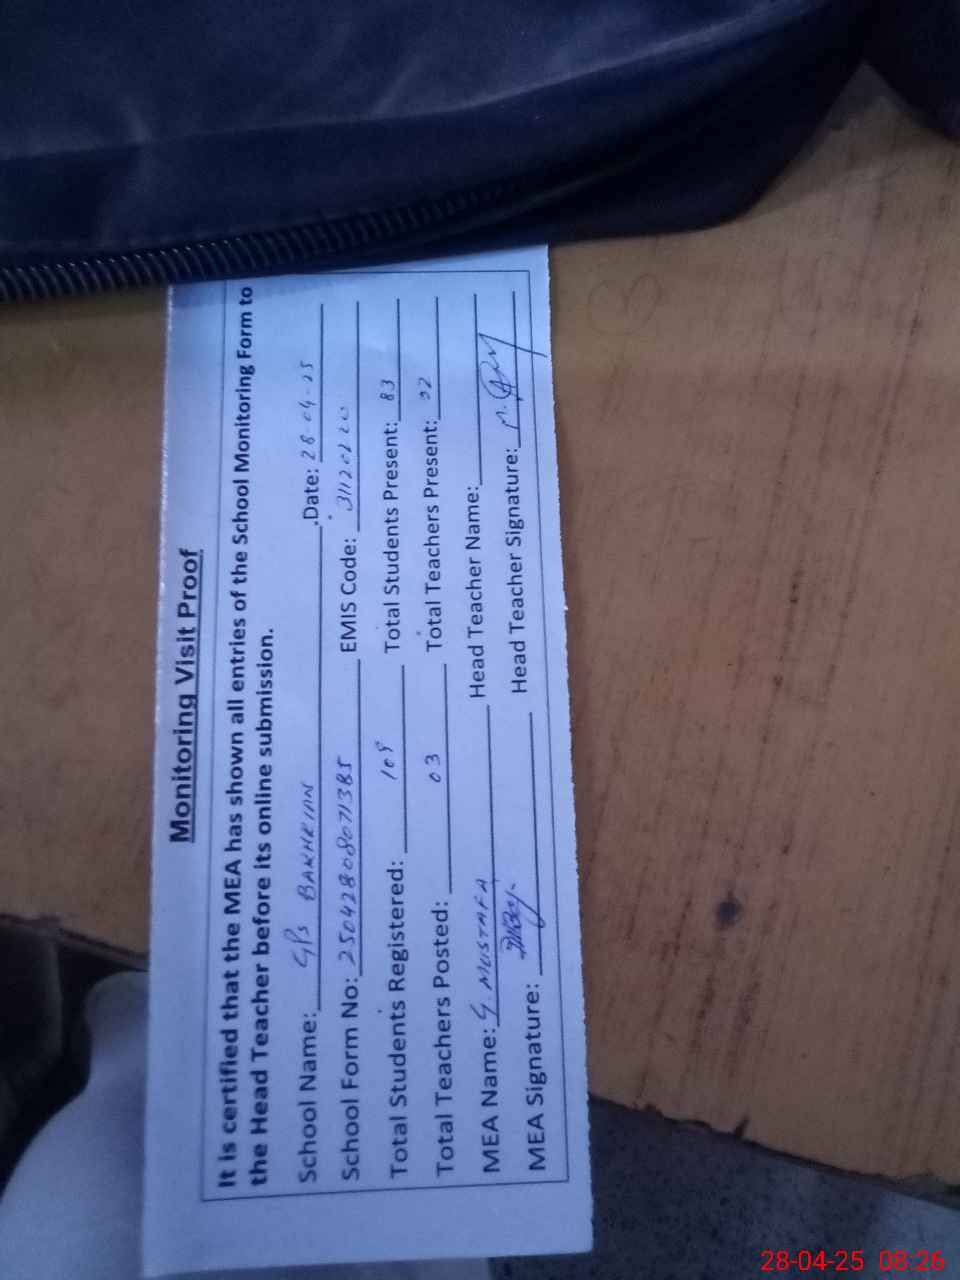 Monitoring Visit Proof
It is certified that the MEA has shown all entries of the School Monitoring Form to
the Head Teacher before its online submission.
School Name: GPS BAKHRIAN Date: 28-04-25
School Form No: 250428080711385 EMIS Code: 31120220
Total Students Registered: 109 Total Students Present: 83
Total Teachers Posted: 03 Total Teachers Present: 02
MEA Name: G. MUSTAFA Head Teacher Name:
MEA Signature: Head Teacher Signature:
28-04-25 08:26